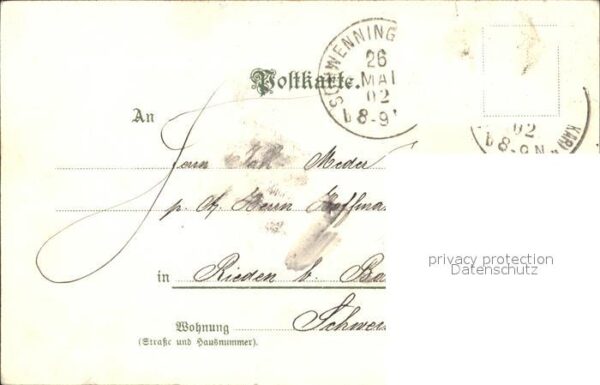 SCHWENNING
26
MAI
02
8-9
Postkarte.
KAR
02
8-9N
An
Herrn Meder
p. Herrn Hoffma
privacy protection
Datenschutz
in Rieden b. Ba
Wohnung Schwei
(Straße und Hausnummer).